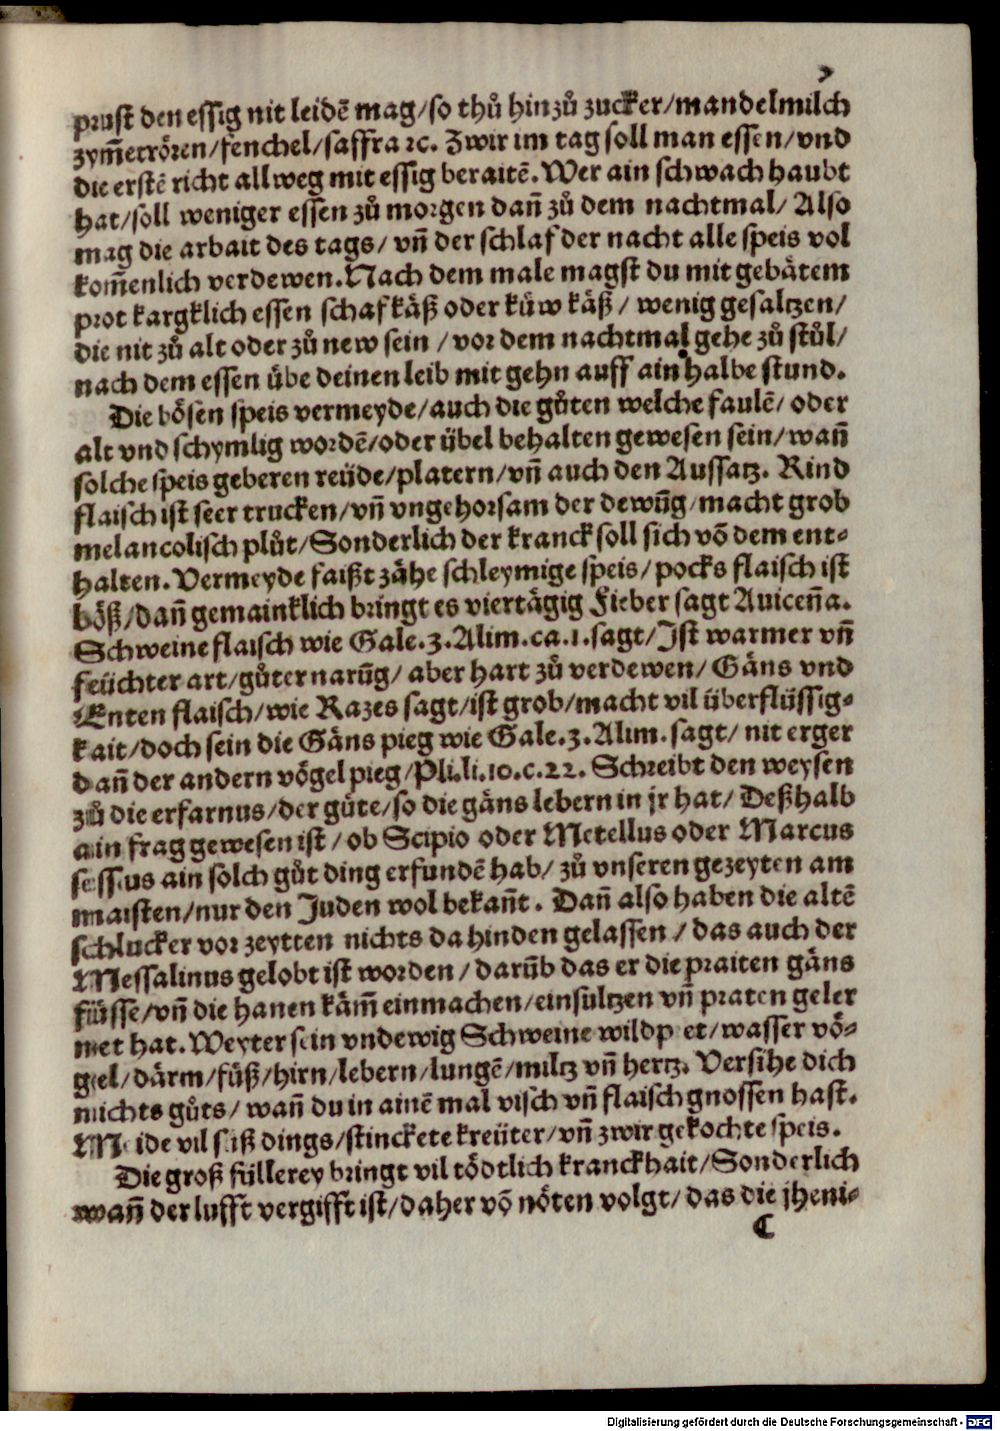 prust den essig nit leidē mag/so thů hinzů zucker/mandelmilch
zym̄etrören/fenchel/saffra ⁊c. Zwir im tag soll man essen/vnd
die erstē richt allweg mit essig beraitē. Wer ain schwach haubt
hat/soll weniger essen zů morgen dañ zů dem nachtmal/ Also
mag die arbait des tags/ vñ der schlaf der nacht alle speis vol
kom̄enlich verdewen. Nach dem male magst du mit gebätem
prot kargklich essen schaf käß oder küw käß/ wenig gesaltzen/
die nit zů alt oder zů new sein/vor dem nachtmal gehe zů stůl/
nach dem essen übe deinen leib mit gehn auff ain halbe stund.
Die bösen speis vermeyde/auch die gůten welche faulē/ oder
alt vnd schymlig wordē/oder übel behalten gewesen sein/wañ
solche speis geberen reüde/platern/vñ auch den Aussatz. Rind
flaisch ist seer trucken/vñ vngehorsam der dewũg/macht grob
melancolisch plůt/Sonderlich der kranck soll sich vō dem ent-
halten. Vermeyde faißt zähe schleymige speis/pocks flaisch ist
böß/dañ gemainklich bringt es viertägig Fieber sagt Auiceña.
Schweine flaisch wie Gale.3.Alim.ca.1.sagt/Ist warmer vñ
feüchter art/gůter narũg/ aber hart zů verdewen/ Gäns vnd
Enten flaisch/wie Razes sagt/ist grob/macht vil überflüssig-
kait/doch sein die Gäns pieg wie Gale.3.Alim.sagt/ nit erger
dañ der andern vögel pieg/Pli.li.10.c.22. Schreibt den weysen
zů die erfarnus/der güte/so die gäns lebern in jr hat/ Deßhalb
ain frag gewesen ist/ ob Scipio oder Metellus oder Marcus
sessius ain solch gůt ding erfundē hab/ zů vnseren gezeyten am
maisten/nur den Juden wol bekañt. Dañ also haben die altē
schlucker vor zeytten nichts dahinden gelassen/ das auch der
Messalinus gelobt ist worden/darũb das er die praiten gäns
füsse/vñ die hanen käm̄ einmachen/einsültzen vñ praten geler
met hat. Weyter sein vndewig Schweine wildp et/wasser vö-
gel/därm/füß/hirn/lebern/lungē/miltz vñ hertz. Versihe dich
nichts gůts/ wañ du in ainē mal visch vñ flaisch gnossen hast.
Meide vil süß dings/stinckete kreüter/vñ zwir gekochte speis.
Die groß füllerey bringt vil tödtlich kranckhait/Sonderlich
wañ der lufft vergifft ist/daher vō nöten volgt/das die jheni-
C
Digitalisierung gefördert durch die Deutsche Forschungsgemeinschaft - DFG